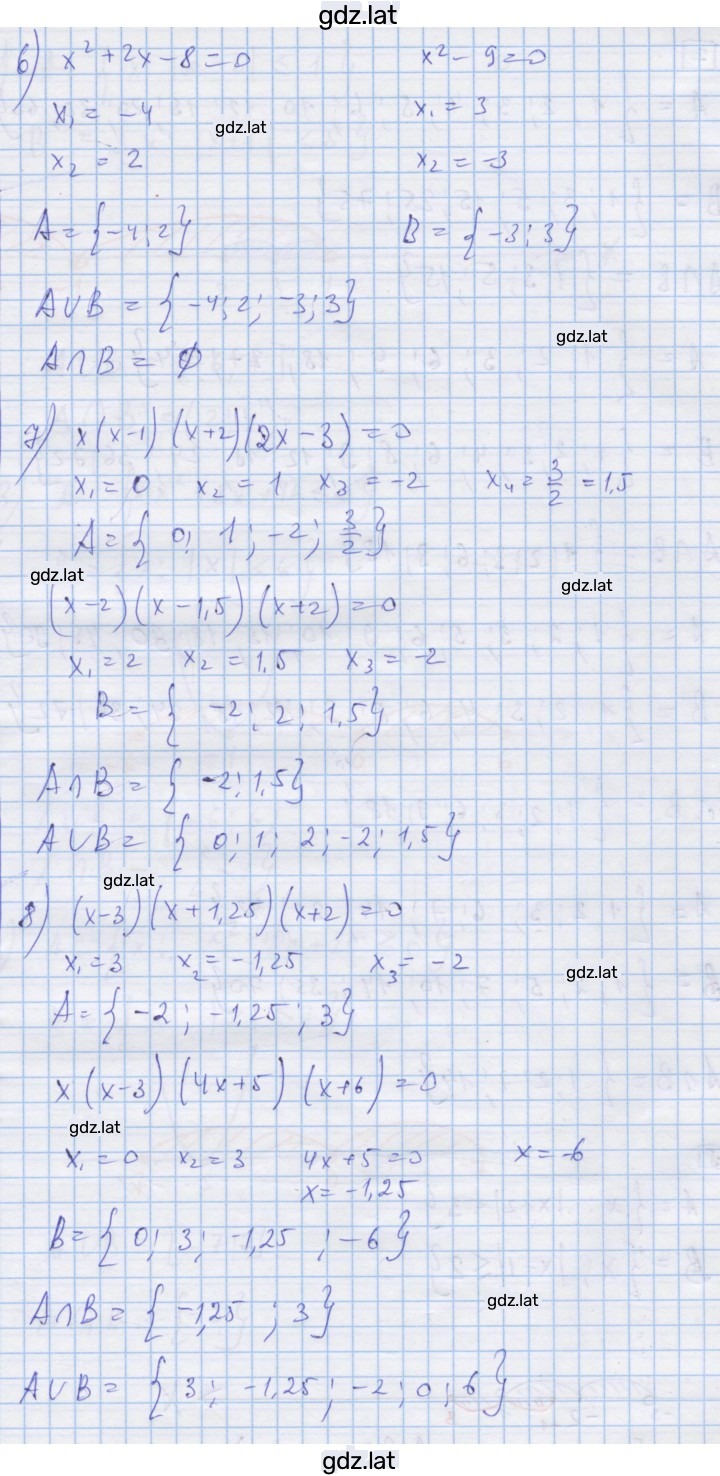 gdz.lat
6) x² + 2x - 8 = 0 x² - 9 = 0
x₁ = -4 x₁ = 3
gdz.lat
x₂ = 2 x₂ = -3
A = {-4; 2} B = {-3; 3}
A∪B = {-4; 2; -3; 3}
gdz.lat
A∩B = ∅
7) x(x-1)(x+2)(2x-3) = 0
x₁ = 0 x₂ = 1 x₃ = -2 x₄ = 3/2 = 1,5
A = {0; 1; -2; 3/2}
gdz.lat
gdz.lat
(x-2)(x-1,5)(x+2) = 0
x₁ = 2 x₂ = 1,5 x₃ = -2
B = {-2; 2; 1,5}
A∩B = {-2; 1,5}
A∪B = {0; 1; 2; -2; 1,5}
gdz.lat
8) (x-3)(x+1,25)(x+2) = 0
x₁ = 3 x₂ = -1,25 x₃ = -2
gdz.lat
A = {-2; -1,25; 3}
x(x-3)(4x+5)(x+6) = 0
gdz.lat
x₁ = 0 x₂ = 3 4x+5 = 0 x = -6
x = -1,25
B = {0; 3; -1,25; -6}
gdz.lat
A∩B = {-1,25; 3}
A∪B = {3; -1,25; -2; 0; 6}
gdz.lat